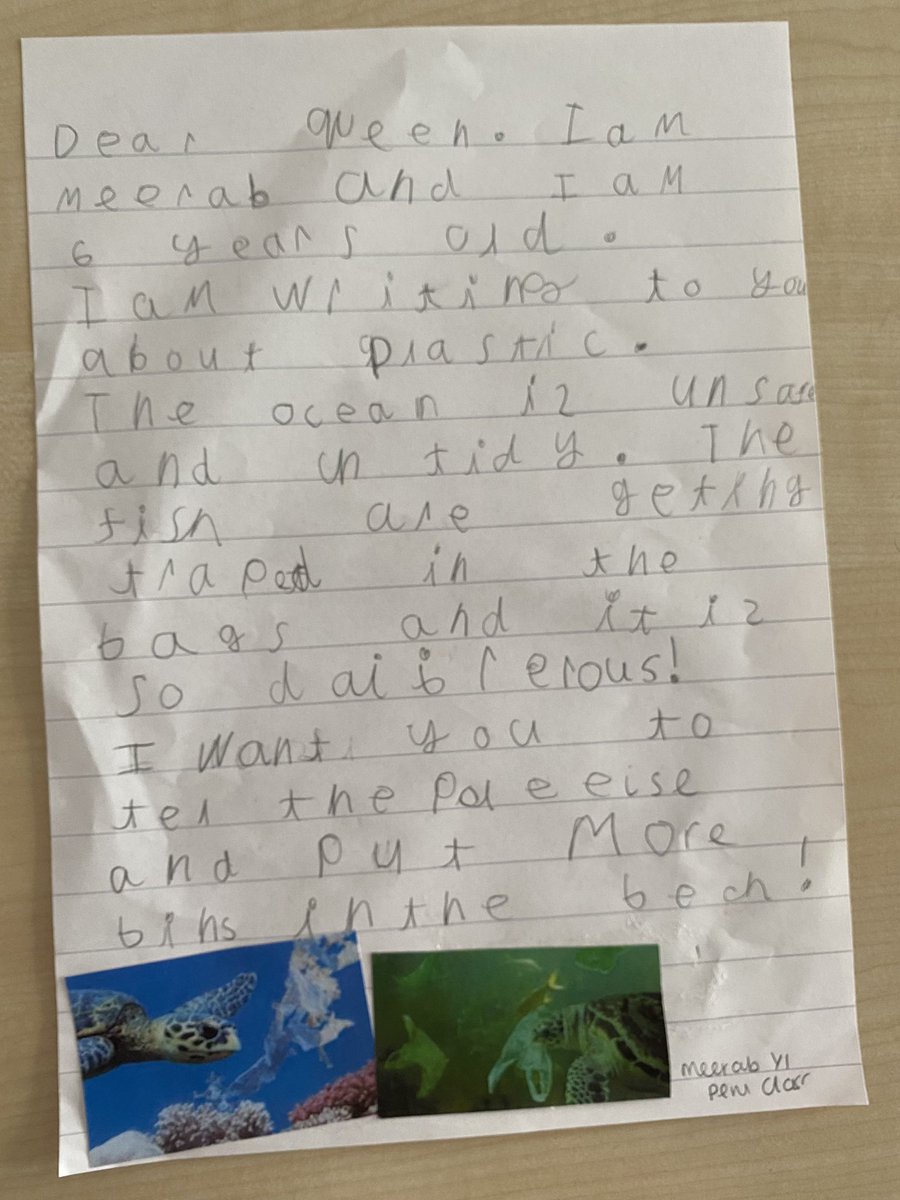 Dear Queen. I am
meerab and I am
6 years old.
I am writing to you
about plastic.
The ocean iz unsafe
and un tidy. The
fish are getting
traped in the
bags and it iz
so daibrerous!
I want you to
tel the poleeise
and put More
bins in the bech!
meerab Y1
Peru Class